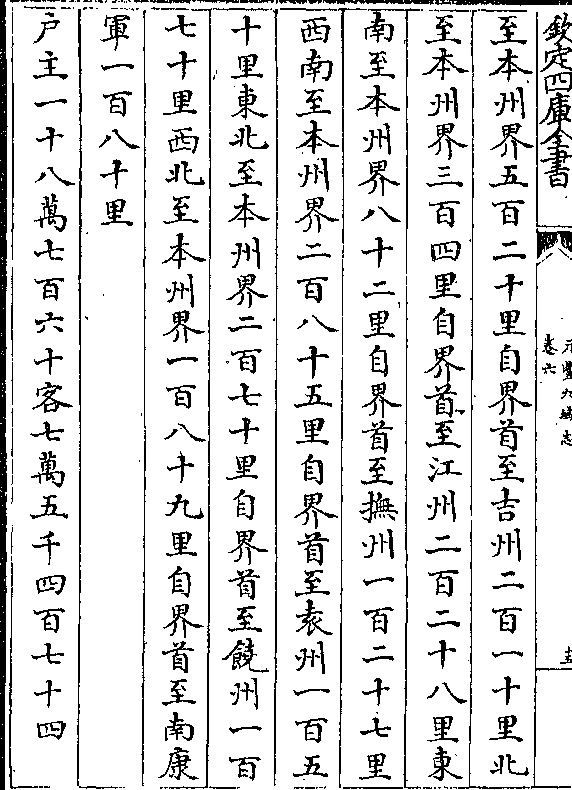 欽定四庫全書
元豐九域志
卷六
至本州界五百二十里自界首至吉州二百一十里北
至本州界三百四里自界首至江州二百二十八里東
南至本州界八十二里自界首至撫州一百二十七里
西南至本州界二百八十五里自界首至袁州一百五
十里東北至本州界二百七十里自界首至饒州一百
七十里西北至本州界一百八十九里自界首至南康
軍一百八十里
户主一十八萬七百六十客七萬五千四百七十四